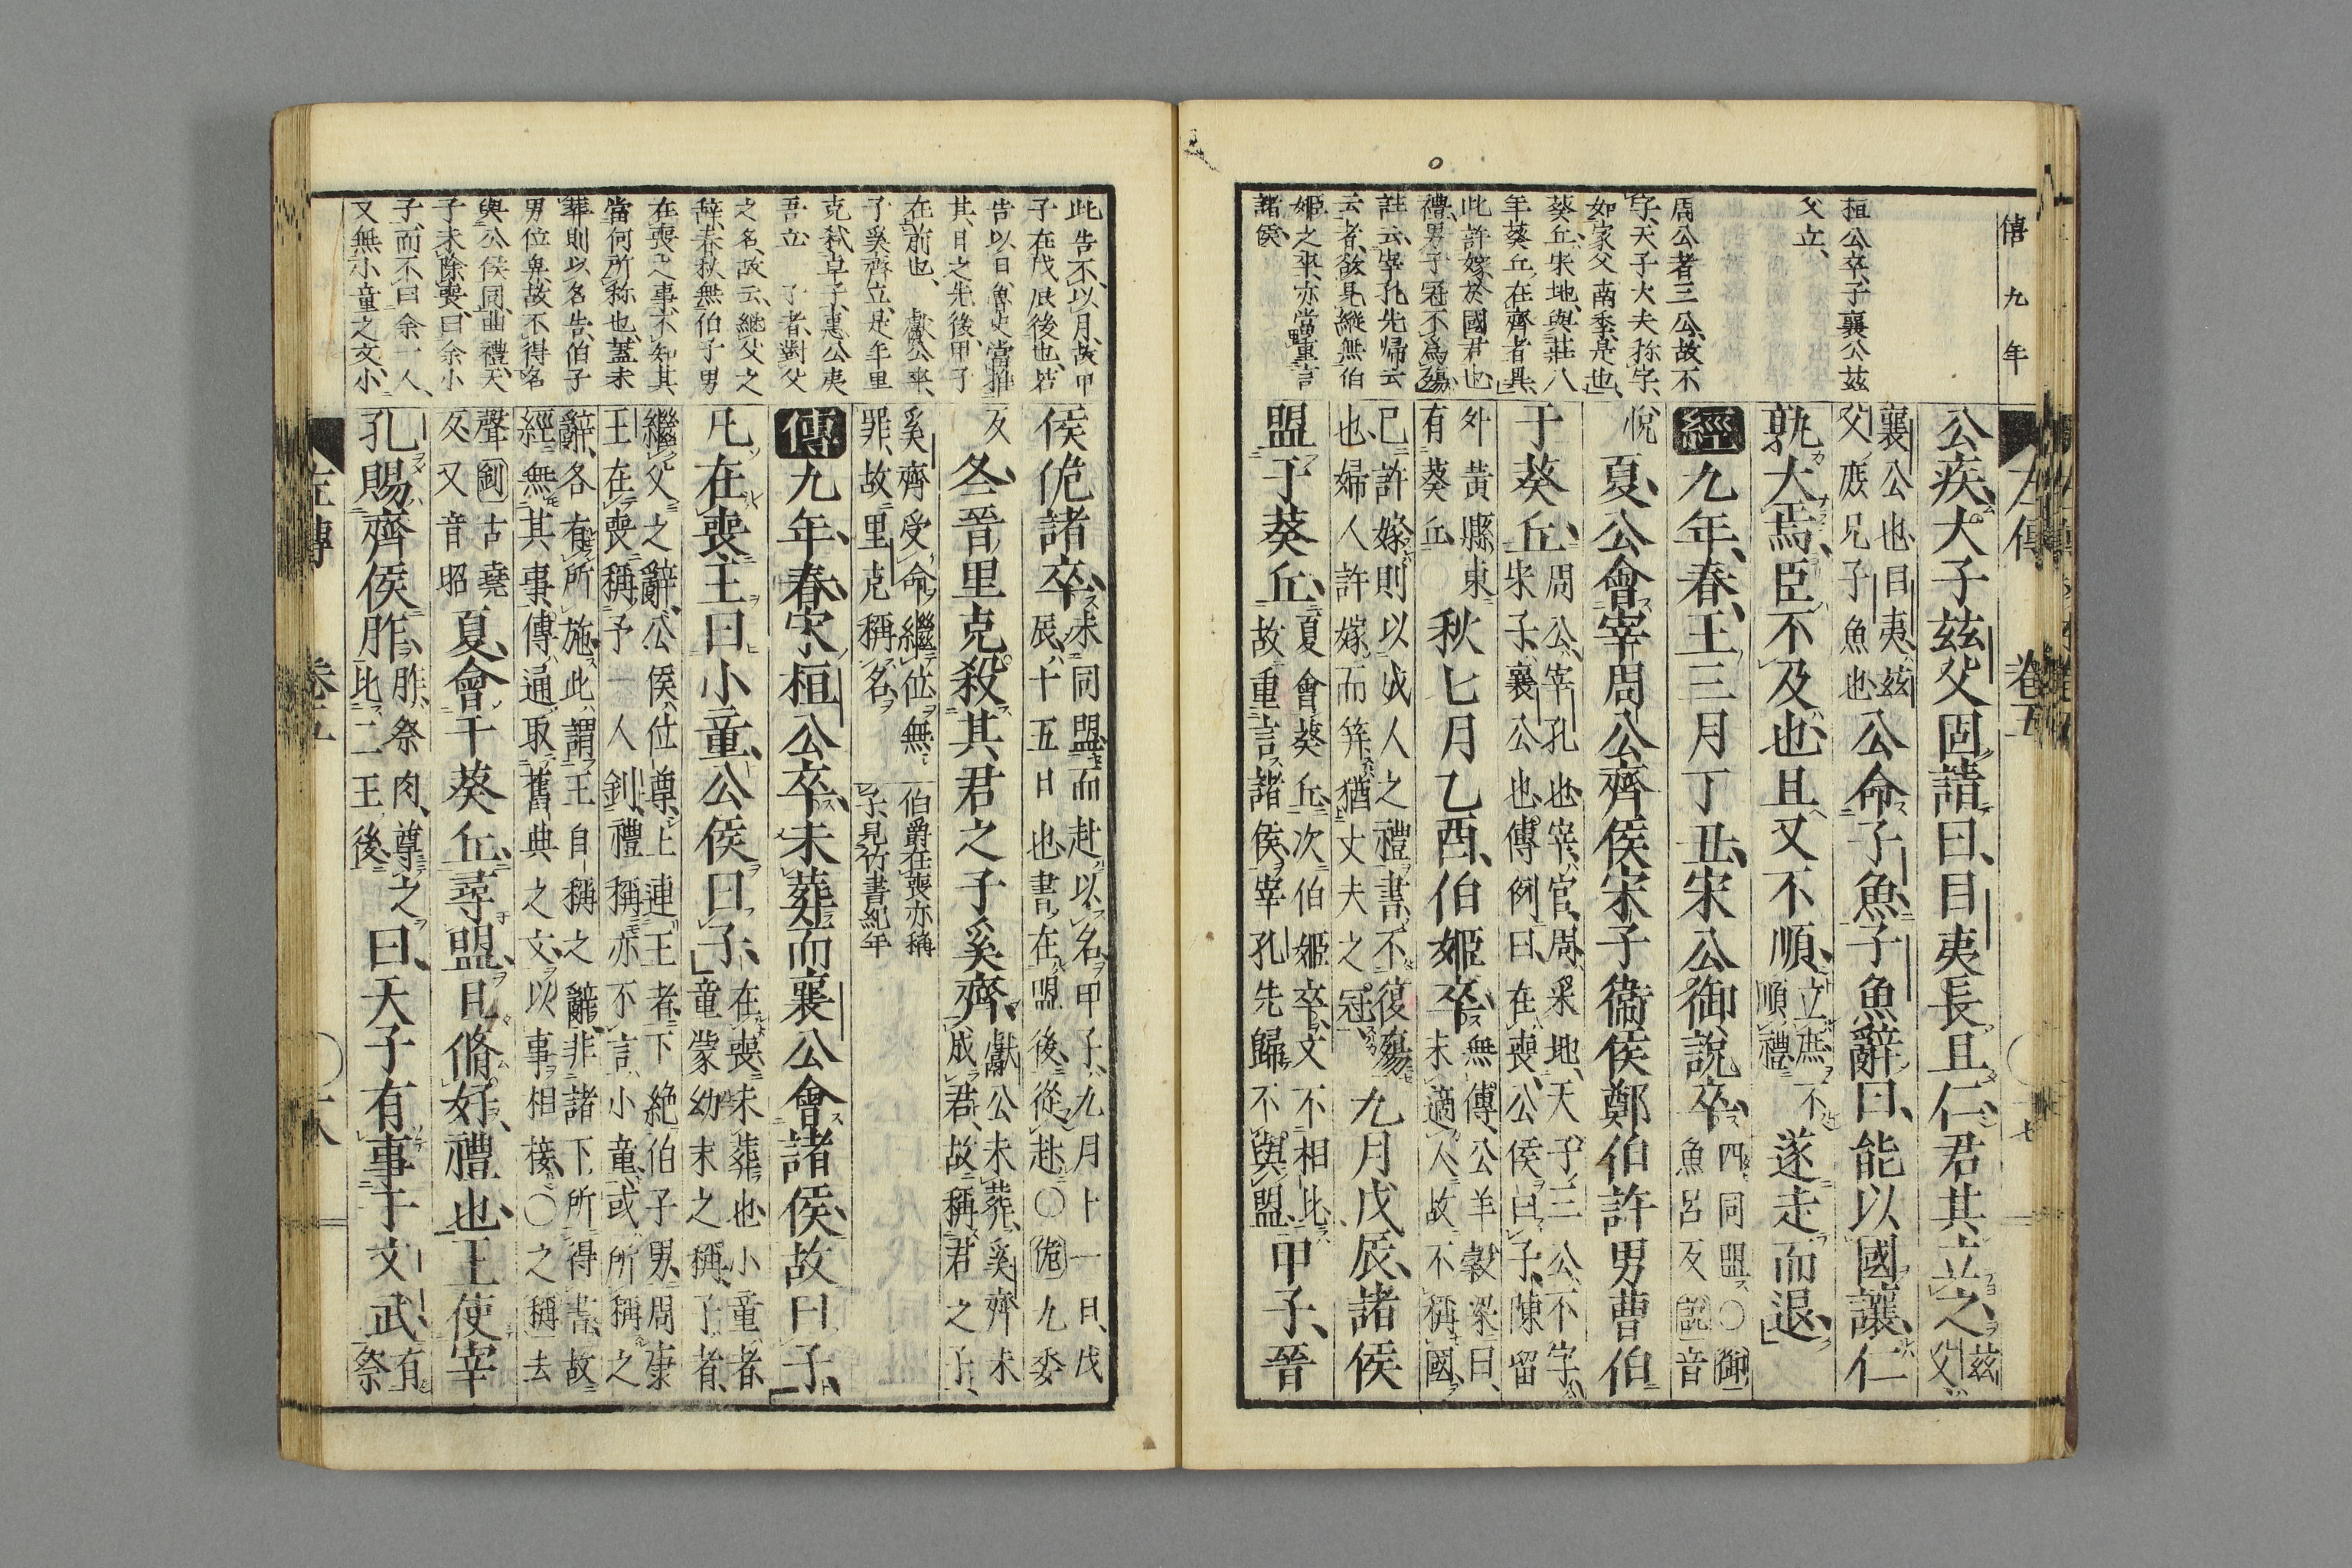 僖九年
桓公卒、子襄公茲
父立、
周公者三公、故不
字、天子大夫称字、
如家父南季是也、
葵丘、宋地、與莊八
年葵丘、在齊者異、
此許嫁於國君也
禮、男子冠不為殤、
註云、宰孔先帰云
云者、欲見縱無伯
姬之卒、亦當重言
諸侯、
左傳 卷五
公疾、大子茲父固請曰、目夷長且仁、君其立之、茲父、
襄公也、目夷、茲父庶兄子魚也 公命子魚、子魚辭曰、能以國讓、仁
孰大焉、臣不及也、且又不順、立庶不順禮 遂走而退、
經 九年、春、王三月丁丑、宋公御說卒、四同盟○御魚呂反說音
悅 夏、公會宰周公齊侯宋子衛侯鄭伯許男曹伯
于葵丘、周公、宰孔也、宰、官、周、采地、天子三公不字、宋子、襄公也、傳例曰、在喪、公侯曰子、陳留
外黃縣東有葵丘 秋七月乙酉、伯姬卒、無傳、公羊穀梁曰、未適人、故不稱國、
已許嫁、則以成人之禮書、不復殤也、婦人許嫁而笄、猶丈夫之冠、 九月戊辰、諸侯
盟于葵丘、夏會葵丘、次伯姬卒、文不相比、故重言諸侯、宰孔先歸、不與盟、 甲子、晉
此告不以月、故甲
子在戊辰後也、若
告以日、魯史當推
其日之先後、甲子
在前也、 獻公卒、
子奚齊立、是年里
克弒卓子、惠公夷
吾立 子者、對父
之名、故云、繼父之
辞、春秋無伯子男
在喪之事、不知其
當何所称也、蓋未
葬則以名告、伯子
男位卑、故不得名
與公侯同、曲禮、天
子未除喪、曰余小
子、而不曰余一人、
又無小童之文、小
侯佹諸卒、未同盟而赴以名、甲子、九月十一日、戊辰、十五日也、書在盟後、從赴○佹九委
反 冬、晉里克殺其君之子奚齊、獻公未葬、奚齊未成君、故稱君之子、
奚齊受命繼位、無罪、故里克稱名、 伯爵在喪亦稱子、見竹書紀年
傳 九年、春、宋桓公卒、未葬而襄公會諸侯、故曰子、
凡在喪、王曰小童、公侯曰子、在喪、未葬也、小童者、童蒙幼末之稱、子者、
繼父之辭、公侯位尊、上連王者、下絶伯子男、周康王在喪、稱予一人釗、禮稱亦不言小童、或所稱之
辭、各有所施、此謂王自稱之辭、非諸下所得書、故經無其事、傳通取舊典之文、以事相接、○之稱去
聲釗古堯反又音昭 夏、會于葵丘、尋盟、且脩好、禮也、王使宰
孔賜齊侯胙、胙、祭肉、尊之比二王後、 曰、天子有事于文武、有祭
左傳 卷五